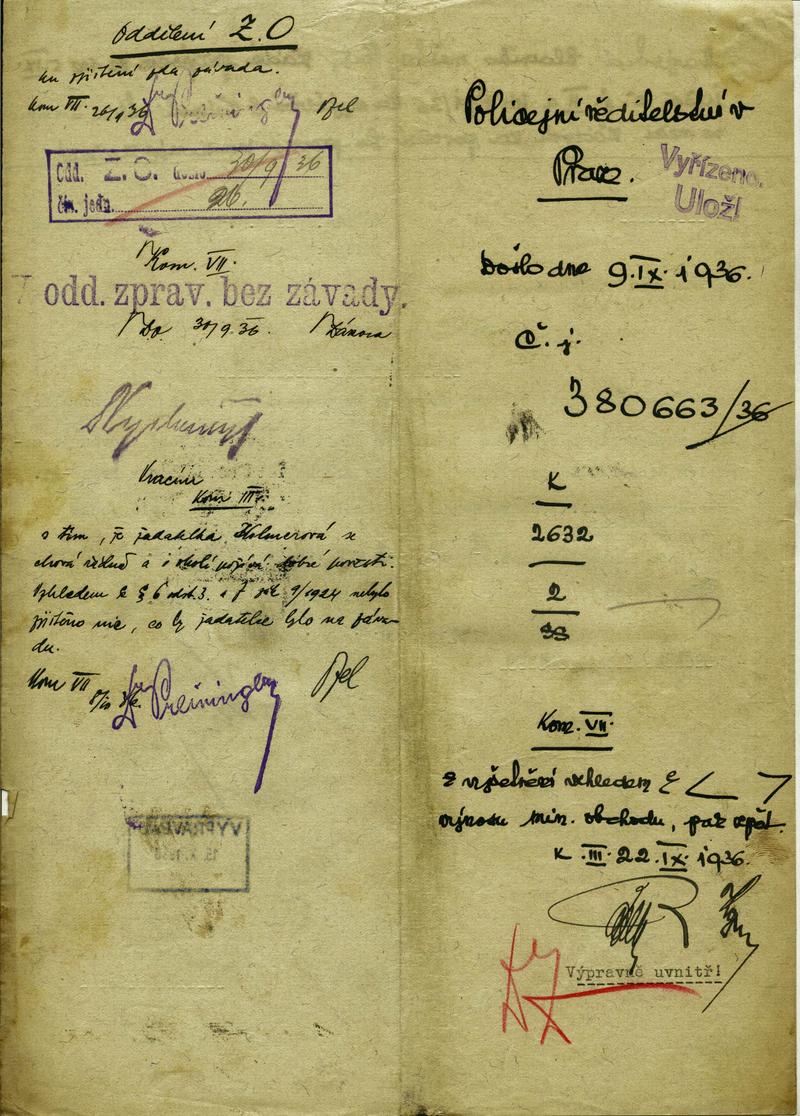 Oddělení Z.O
ku zjištění zda závada.
Kom VII. 26/9 36
Odd. Z.O. došlo 30/9 36
čís. jedn. 26.
Kom. VII.
odd. zprav. bez závady.
Do 30/9.36.
Vracím
Kom III.
s tím, že žadatelka Holmerová se
chová řádně a v okolí požívá dobré pověsti.
Vzhledem k § 6 odst. 3. a 7 9/1924 nebylo
zjištěno nic, co by žadatelce bylo na záva-
du.
Kom VII
Dr Preininger
VÝPRAVNA
Policejní ředitelství v
Praze.
Vyřízeno.
Uložit
Došlo dne 9.IX.1936.
Č. j.
380663/36
K
2632
2
38
Kom. VII.
k vyšetření vzhledem k
výnosu min. obchodu, pak zpět.
K III. 22.IX.1936.
Výpravně uvnitř!